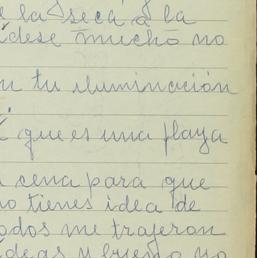 la seca a la
idese mucho no
tu iluminación
que es una playa
cena para que
no tienes idea de
odos me trajeron
ideas y bueno no